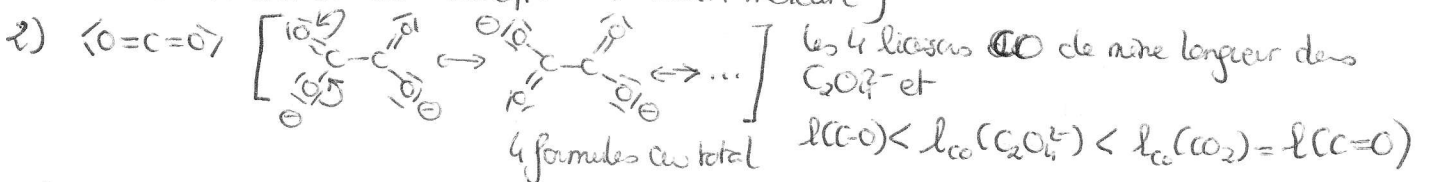 2) ⟨O=C=O⟩ [ O O C-C O ⊖ O ⊖ ↔ ⊖ O O C-C O O ⊖ ↔ ... ] les 4 liaisons CO de même longueur dans
C₂O₄²⁻ et
4 formules au total l(C-O) < l_CO(C₂O₄²⁻) < l_CO(CO₂) = l(C=O)